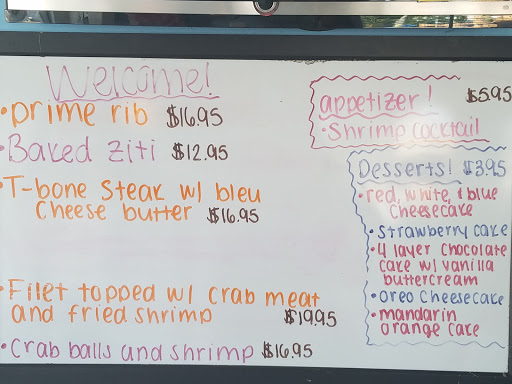 Welcome!
• prime rib $16.95
• Baked Ziti $12.95
• T-bone Steak w/ bleu
Cheese butter $16.95
• Filet topped w/ crab meat
and fried shrimp $19.95
• Crab balls and shrimp $16.95
appetizer! $5.95
• Shrimp cocktail
Desserts! $3.95
• red, white, & blue
Cheesecake
• Strawberry cake
• 4 layer chocolate
cake w/ vanilla
buttercream
• Oreo Cheesecake
• mandarin
orange cake